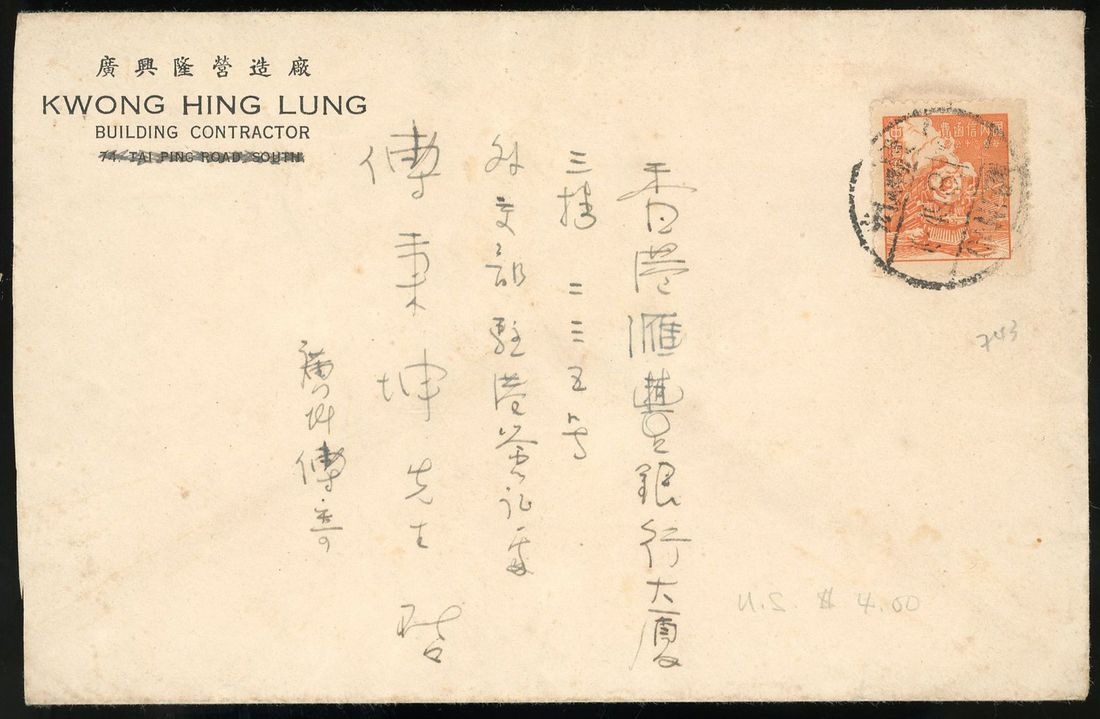 廣興隆營造廠
KWONG HING LUNG
BUILDING CONTRACTOR
74, TAI PING ROAD SOUTH
國內信函費
香港滙豐銀行大廈
三楼二三五号
外交部駐港簽証處
傅秉坤先生 啓
廣州傅寄
743
U.S. $ 4.00